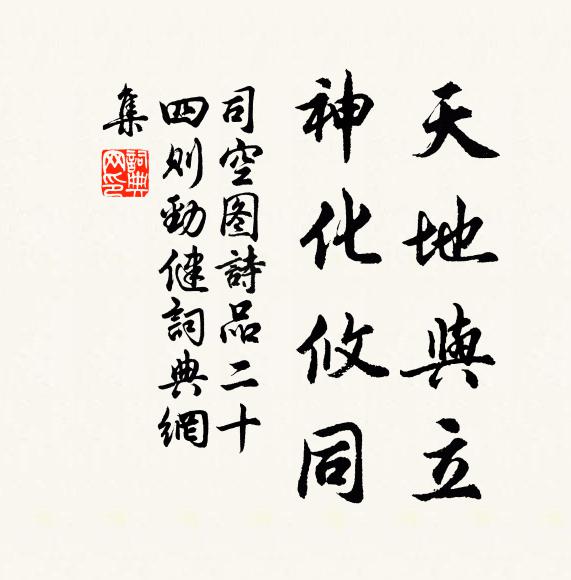 天地與立
神化攸同
司空圖詩品二十
四則勁健詞典網
集
詞典
网印